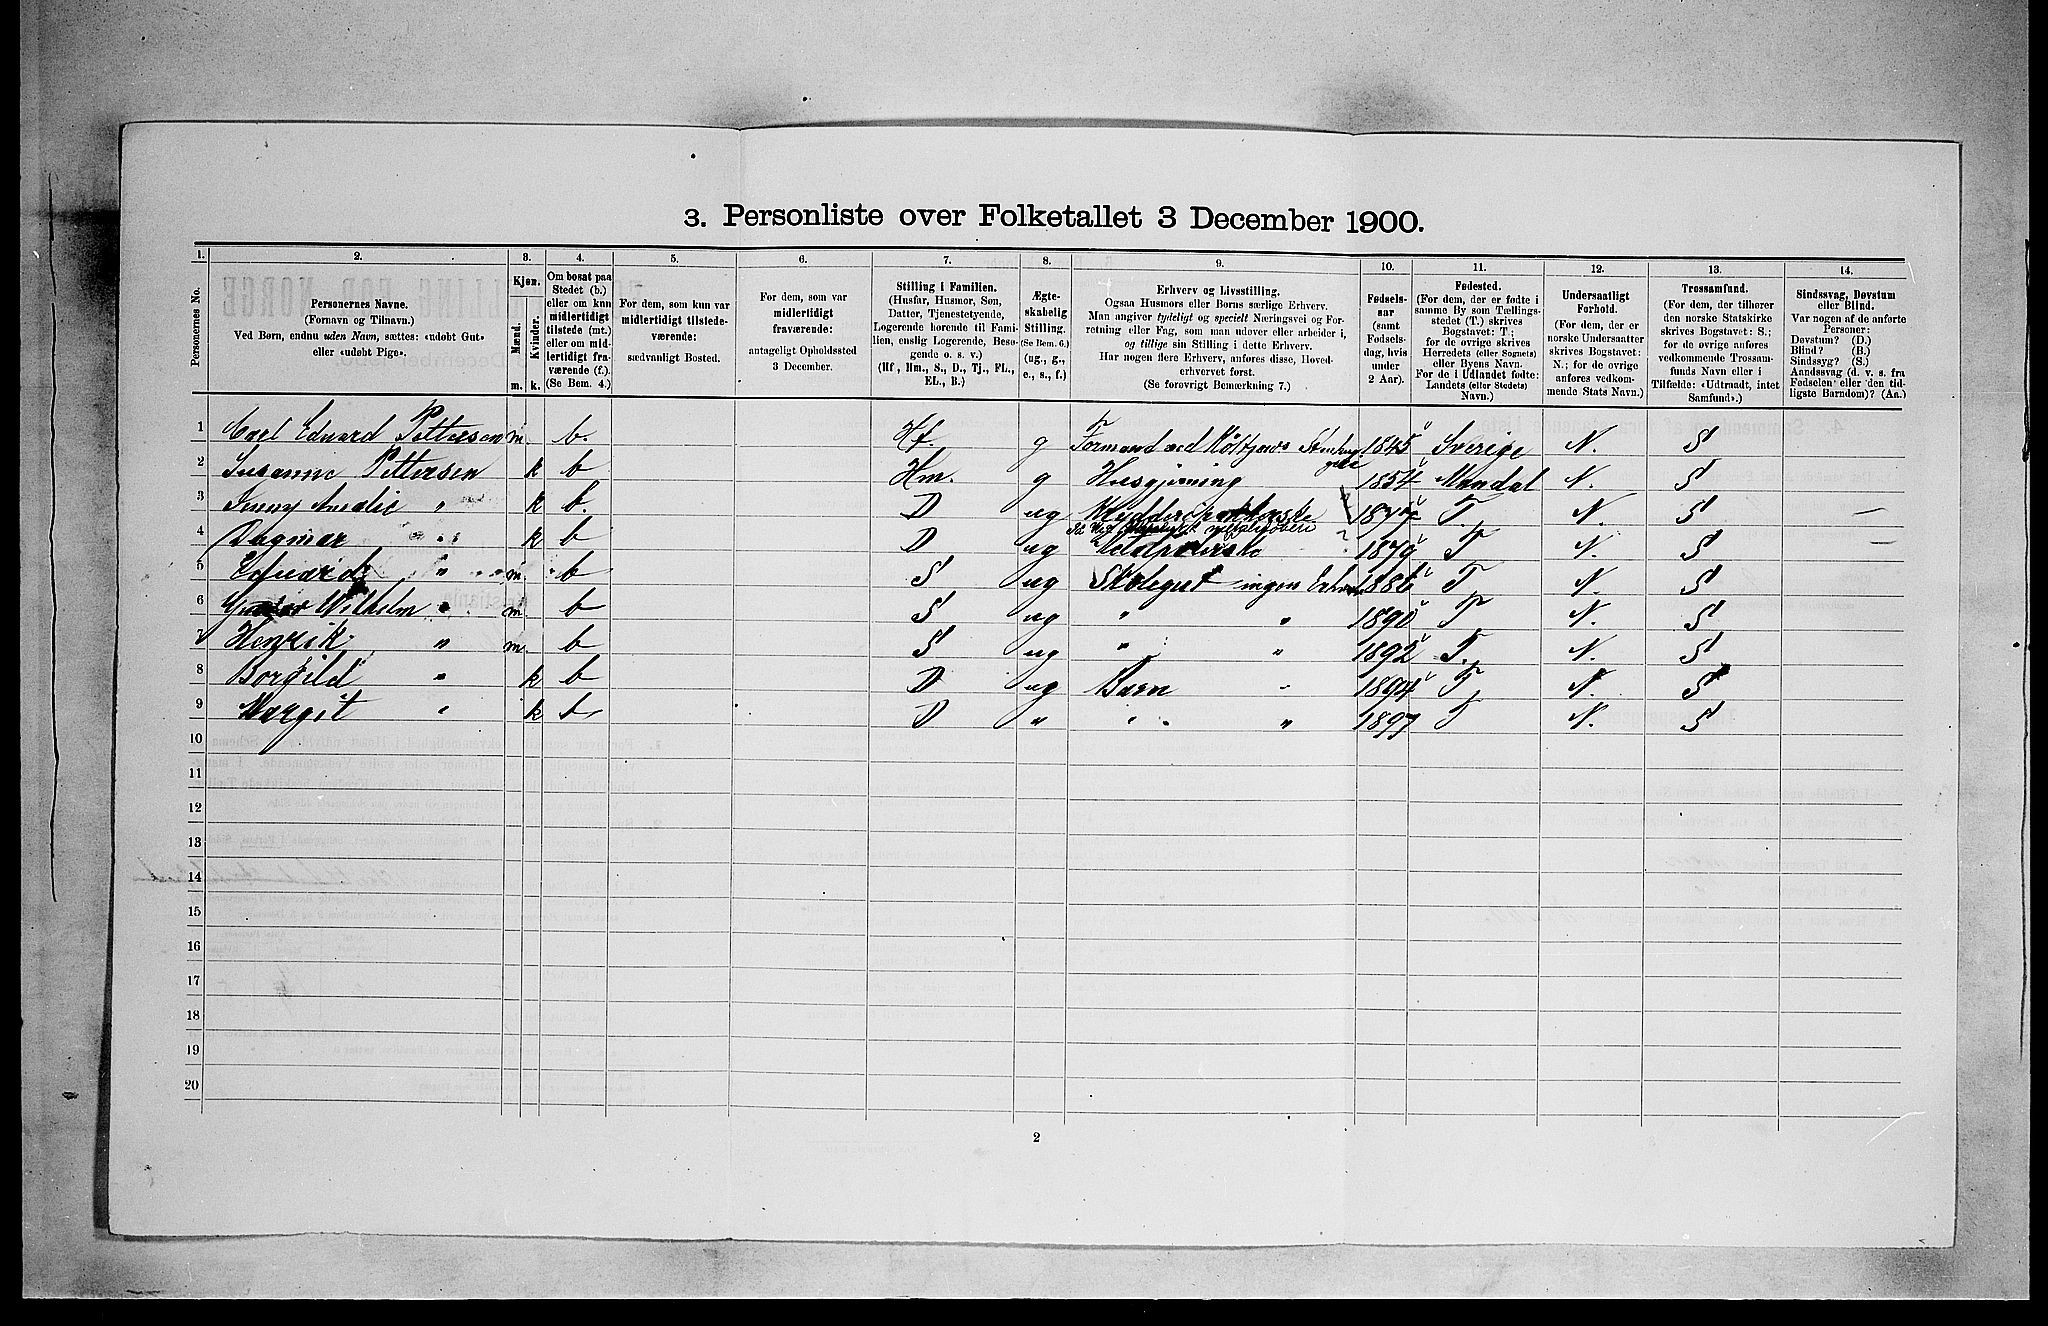 3. Personliste over Folketallet 3 December 1900.
1. 2. 3. 4. 5. 6. 7. 8. 9. 10. 11. 12. 13. 14.
Personernes No.
Personernes Navne.
(Fornavn og Tilnavn.)
Ved Børn, endnu uden Navn, sættes: «udøbt Gut»
eller «udøbt Pige».
Kjøn.
Mænd.
Kvinder.
m. k.
Om bosat paa
Stedet (b.)
eller om kun
midlertidigt
tilstede (mt.)
eller om mid-
lertidigt fra-
værende (f.).
(Se Bem. 4.)
For dem, som kun var
midlertidigt tilstede-
værende:
sædvanligt Bosted.
For dem, som var
midlertidigt
fraværende:
antageligt Opholdssted
3 December.
Stilling i Familien.
(Husfar, Husmor, Søn,
Datter, Tjenestetyende,
Logerende hørende til Fami-
lien, enslig Logerende, Besø-
gende o. s. v.)
(Hf, Hm., S., D., Tj., FL.,
EL., B.)
Ægte-
skabelig
Stilling.
(Se Bem. 6.)
(ug., g.,
e., s., f.)
Erhverv og Livsstilling.
Ogsaa Husmors eller Børns særlige Erhverv.
Man angiver tydeligt og specielt Næringsvei og For-
retning eller Fag, som man udøver eller arbeider i,
og tillige sin Stilling i dette Erhverv.
Har nogen flere Erhverv, anføres disse, Hoved-
erhvervet først.
(Se forøvrigt Bemærkning 7.)
Fødsels-
aar
(samt
Fødsels-
dag, hvis
under
2 Aar).
Fødested.
(For dem, der er fødte i
samme By som Tællings-
stedet (T.) skrives
Bogstavet: T.;
for de øvrige skrives
Herredets (eller Sognets)
eller Byens Navn.
For de i Udlandet fødte:
Landets (eller Stedets)
Navn.)
Undersaatligt
Forhold.
(For dem, der er
norske Undersaatter
skrives Bogstavet:
N.; for de øvrige
anføres vedkom-
mende Stats Navn.)
Trossamfund.
(For dem, der tilhører
den norske Statskirke
skrives Bogstavet: S.;
for de øvrige anføres
vedkommende Trossam-
funds Navn eller i
Tilfælde: «Udtraadt, intet
Samfund».)
Sindssvag, Døvstum
eller Blind.
Var nogen af de anførte
Personer:
Døvstum? (D.)
Blind? (B.)
Sindssyg? (S.)
Aandssvag (d. v. s. fra
Fødselen eller den tid-
ligste Barndom)? (Aa.)
1 Carl Eduard Pettersen m. b. Hf. g Formand ved 1845 Sverige N. S
2 Susanne Pettersen k b Hm. g Husgjerning 1854 Mandal N. S
3 Jenny Amalie " k b. D ug T. N. S —
4 Dagmar " k b D ug 1879 T N. S —
5 Eduard " m. b S ug Skolegut ingen T N. S
6 Wilhelm " m b S ug " " 1890 T N. S
7 Henrik " m. b S ug " " 1892 T. N. S
8 Borgild " k b D ug Barn " 1894 T, N. S
9 Margit " k b D " " " 1897 T N. S
10
11
12
13
14
15
16
17
18
19
20
2